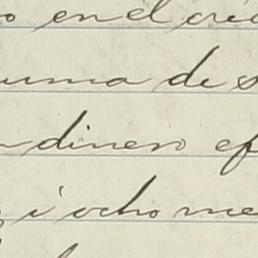 o en el cré
suma de s
n dinero ef
i ocho me